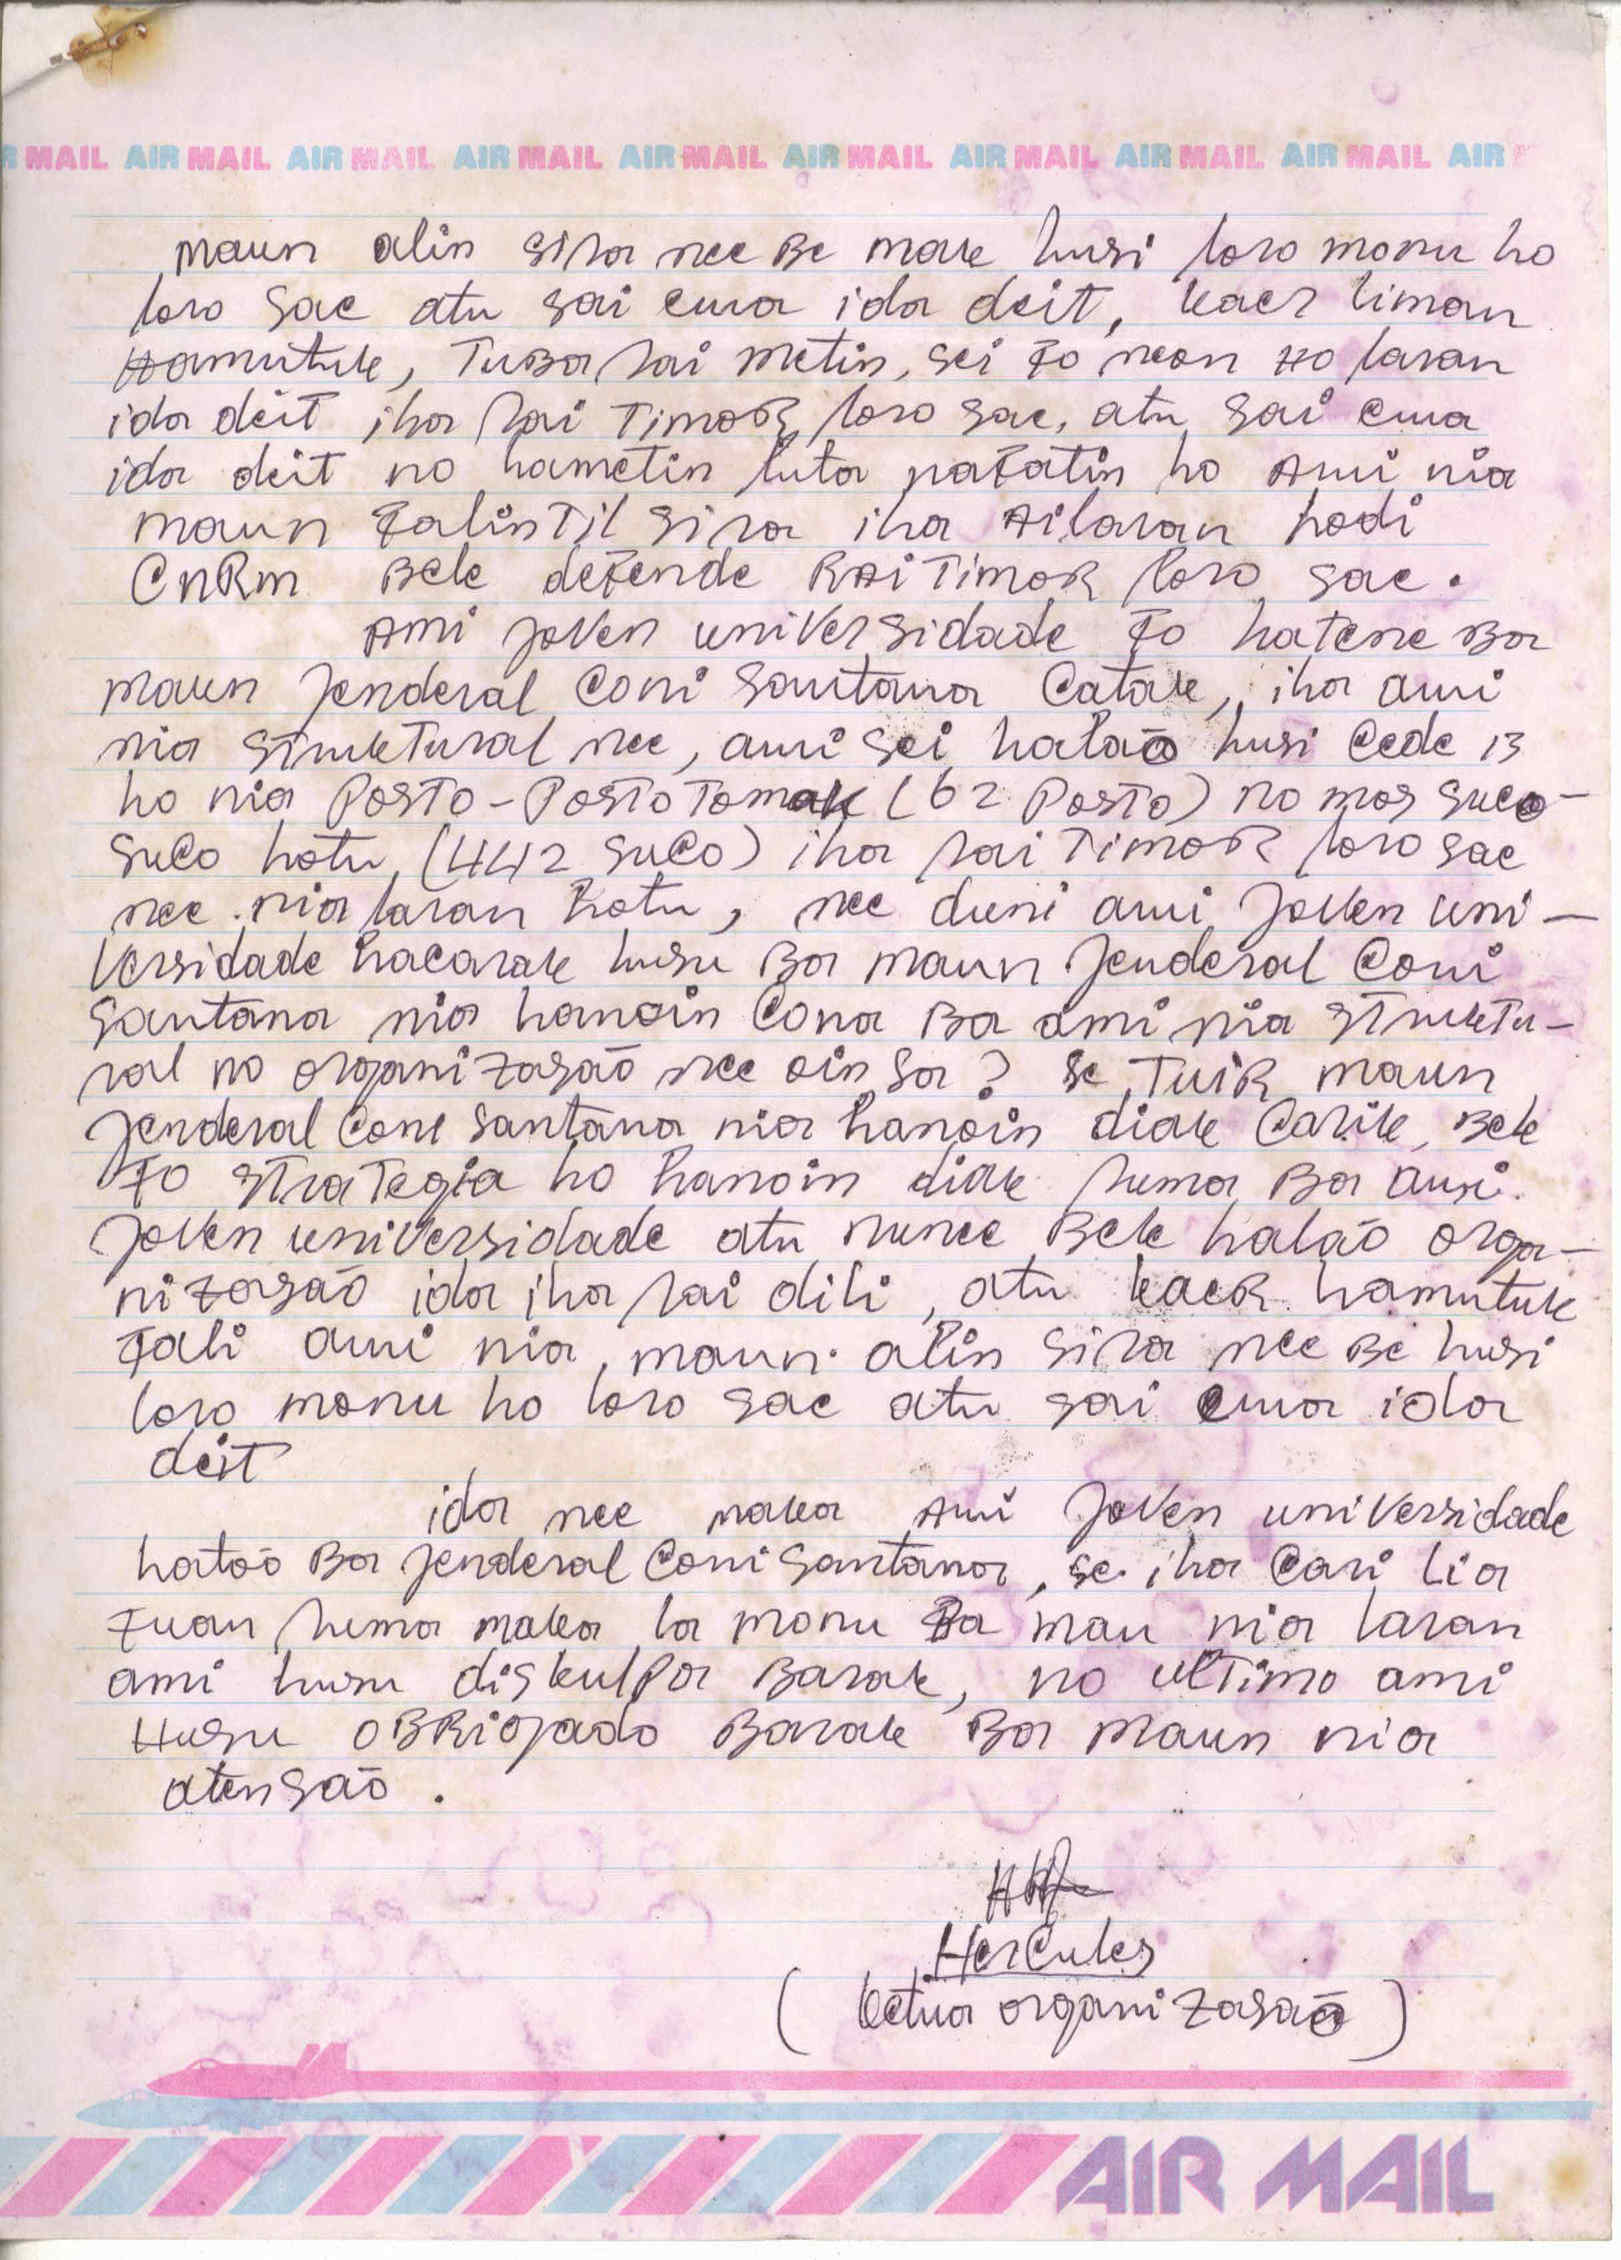 AIR MAIL AIR MAIL AIR MAIL AIR MAIL AIR MAIL AIR MAIL AIR MAIL AIR MAIL AIR MAIL AIR
maun alin sira nee Be mak husi loro monu ho
loro sae atu sai ema ida deit, kaer liman
Hamutuk, TuBa rai metin, sei Fo neon Ho laran
ida deit iha rai TimoR loro sae, atu sai ema
ida deit no hametin luta nafatin ho Ami nia
maun FalinTil sira iha Ailaran hodi
CnRm Bele defende RAi TimoR loro sae.
Ami joven universidade Fo hatene Ba
maun jenderal Coni Santana Catak, iha ami
nia struktural nee, ami sei halaõ husi Cede 13
ho nia PosTo-PosTo Tomak (62 PosTo) no mos suco-
suco hotu (442 suCo) iha rai TimoR loro sae
nee nia laran hotu, nee duni ami joven uni-
versidade hacarak husu Ba maun jenderal Coni
Santana nia hanoin Cona Ba ami nia struktu-
ral no organizasaõ nee oin sa? se TuiR maun
jenderal Coni Santana nia hanoin diak Carik, Bele
Fo straTegia ho hanoin diak ruma Ba ami
joven universidade atu nunee Bele halaõ orga-
nizasaõ ida iha rai dili, atu kaeR hamutuk
Fali ami nia, maun alin sira nee Be husi
loro monu ho loro sae atu sai ema ida
deit
ida nee maka Ami joven universidade
hatoõ Ba jenderal Coni Santana, se iha Cari lia
Fuan ruma maka la monu Ba mau nia laran
ami husu diskulpa Barak, no ulTimo ami
Husu oBRigado Barak Ba maun nia
atensaõ.
HerCules
(ketua organizasaõ)
AIR MAIL